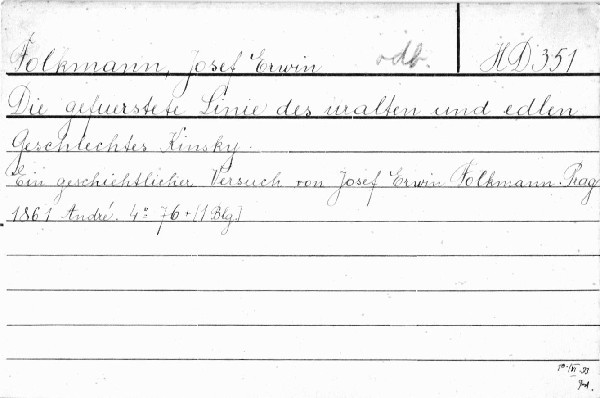 Folkmann, Josef Erwin odb. HD 351
Die gefuerstete Linie des uralten und edlen
Geschlechtes Kinsky.
Ein geschichtlicher Versuch von Josef Erwin Folkmann. Prag
1861 André. 4° 76+[1 Blg.]